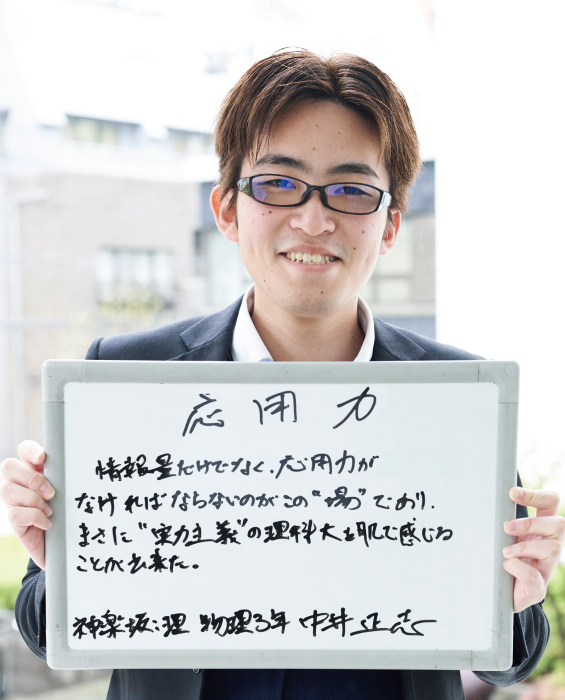 応用力
情報量だけでなく、応用力が
なければならないのがこの“場”であり、
まさに“実力主義”の理科大を肌で感じる
ことが出来た。
神楽坂:理 物理3年 中井正志